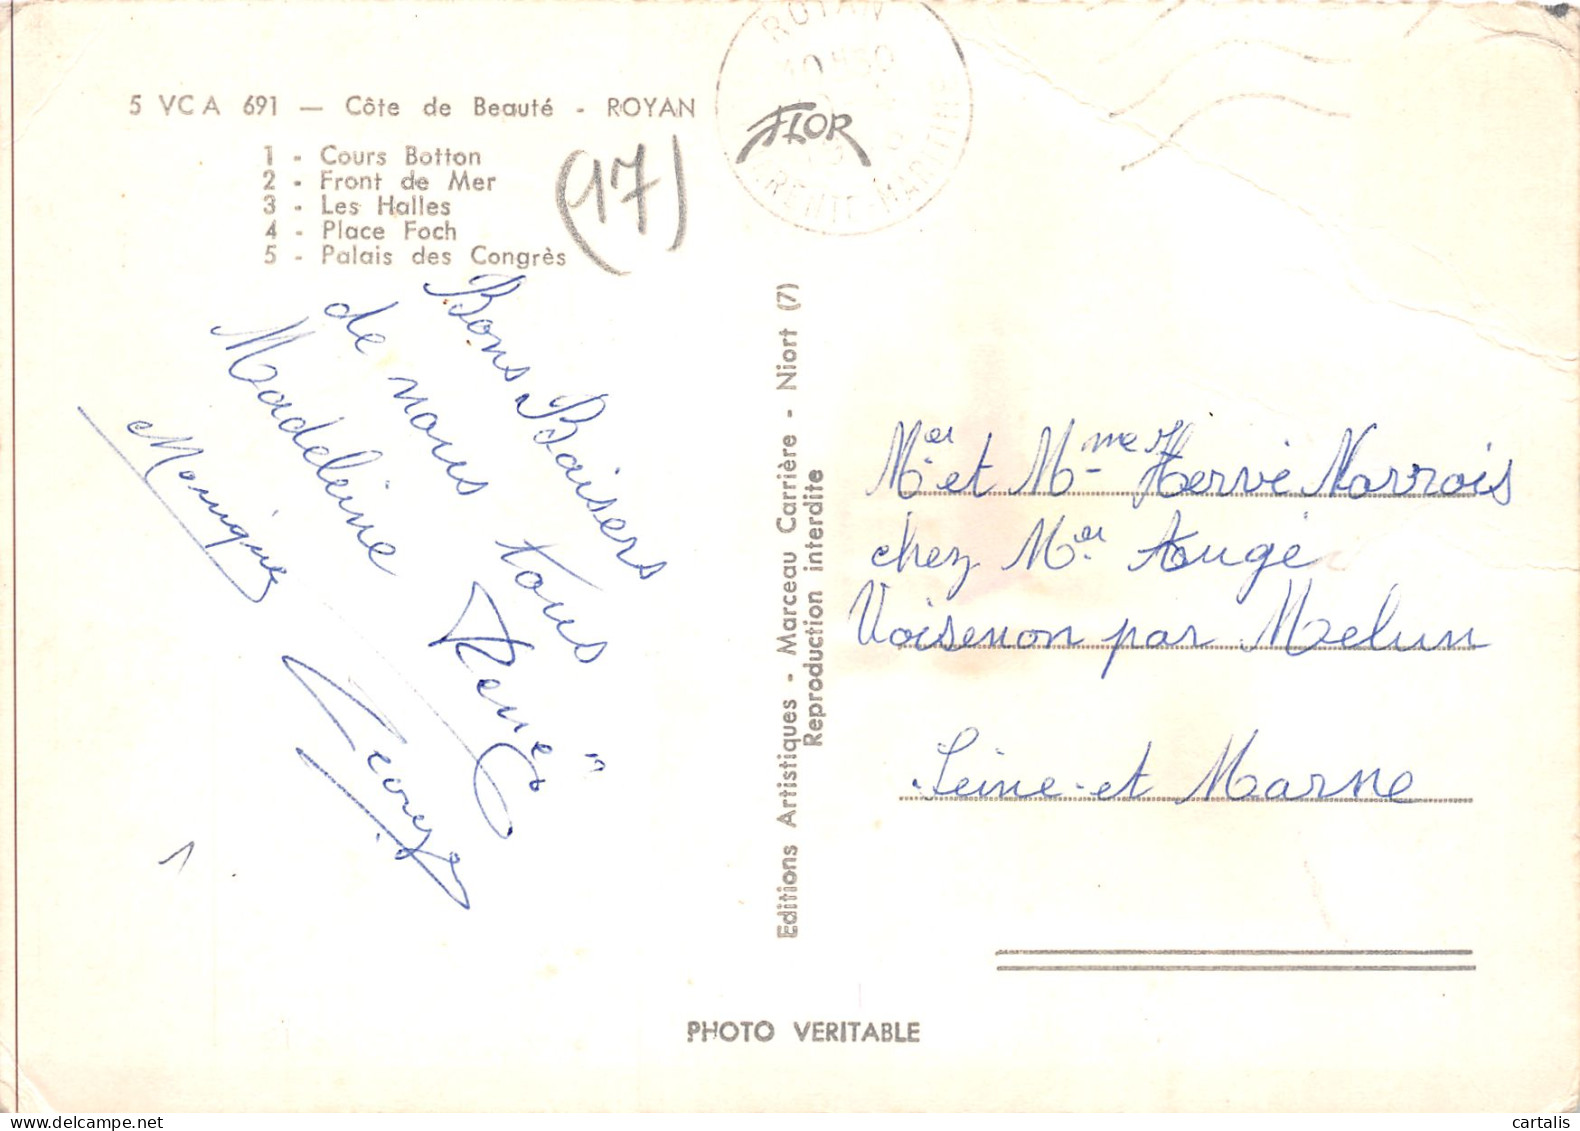 5 VCA 691 — Côte de Beauté - ROYAN
1 - Cours Botton
2 - Front de Mer
3 - Les Halles
4 - Place Foch
5 - Palais des Congrès
(17)
ROYAN
FLOR
Bons Baisers
de nous tous
Madeleine René
Monique
Editions Artistiques - Marceau Carrière - Niort (7)
Reproduction interdite
Mer et Mme Hervé Navrois
chez Mer Augé
Voisenon par Melun
Seine-et Marne
PHOTO VERITABLE
cartalis